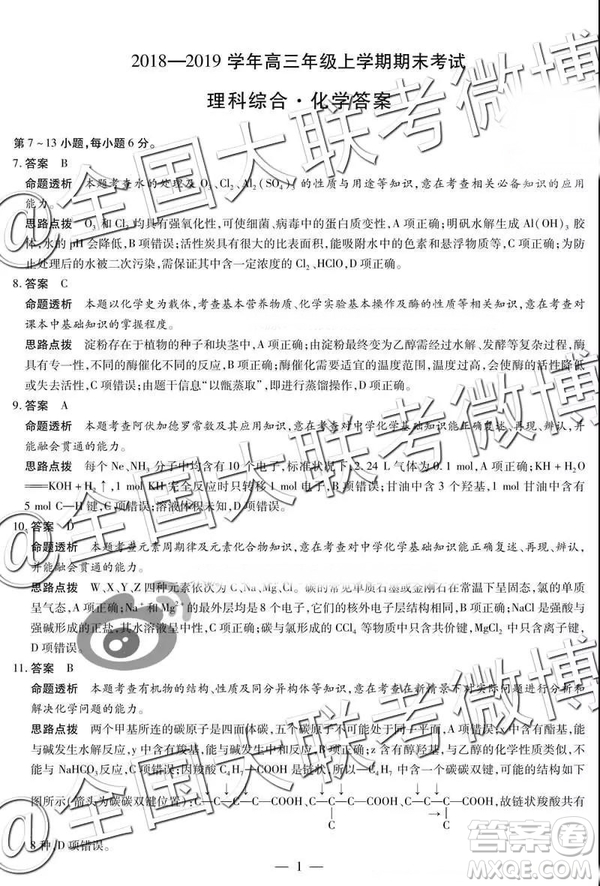 2018—2019 学年高三年级上学期期末考试
理科综合·化学答案
第 7 ~ 13 小题,每小题 6 分。
7. 答案 B
命题透析 本题考查水的处理及 O₃、Cl₂、Al₂(SO₄)₃ 的性质与用途等知识,意在考查相关必备知识的应用
能力。
思路点拨 O₃ 和 Cl₂ 均具有强氧化性,可使细菌、病毒中的蛋白质变性,A 项正确;明矾水解生成 Al(OH)₃ 胶
体,水的 pH 会降低,B 项错误;活性炭具有很大的表面积,能吸附水中的色素和悬浮物质,C 项正确;为防
止处理后的水被二次污染,需其中含有一定浓度的 Cl₂、HClO,D 项正确。
8. 答案 C
命题透析 本题以化学史为载体,考查基本营养物质、化学实验基本操作及酶的性质等知识,意在考查对
课本中基础知识的掌握程度。
思路点拨 淀粉存在于植物的种子和块茎中,A 项正确;由淀粉最终变为乙醇需经过水解、发酵等复杂过程,酶
具有专一性,不同的酶催化不同的反应,B 项正确;酶催化需要适宜的温度范围,温度过高,酶会失去生理
活性,C 项错误;由题干信息“以甑蒸取”,即进行蒸馏操作,D 项正确。
9. 答案 A
命题透析 本题考查阿伏加德罗常数及其应用知识,意在考查对中学化学基础知识能正确复述、再现、辨认,并
能融会贯通的能力。
思路点拨 每个 Ne、NH₃ 分子中均含有 10 个电子,标准状况下,2.24 L 气体为 0.1 mol,A 项正确;KH + H₂O
══KOH + H₂↑,1 mol KH 完全反应时只转移 1 mol 电子,B 项错误;甘油中含 3 个羟基,1 mol 甘油中含有
5 mol C—H 键,C 项错误;溶液体积未知,D 项错误。
10. 答案 D
命题透析 本题考查元素周期律及元素化合物知识,意在考查对中学化学基础知识能正确复述、再现、辨认,并
能融会贯通的能力。
思路点拨 W、X、Y、Z 四种元素依次为 C、Na、Mg、Cl。碳的常见单质石墨或金刚石在常温下呈固态,氯的单质
呈气态,A 项正确;Na⁺ 和 Mg²⁺ 的最外层均是 8 个电子,它们的半径大小不同,B 项正确;NaCl 是强酸与
强碱形成的正盐,其水溶液呈中性,C 项正确;碳与氯形成的 CCl₄ 中只含共价键,MgCl₂ 中只含离子键,
D 项错误。
11. 答案 B
命题透析 本题考查有机物的结构、性质及同分异构体等知识,意在考查在新情境下综合运用知识进行分析和
解决化学问题的能力。
思路点拨 两个甲基所连的碳原子是四面体碳,五个碳原子不可能处于同一平面,A 项错误;x 中含有酯基,能
与 NaOH 溶液反应,y 中含有羧基,能与 NaOH 溶液反应,B 项正确;x 中没有羧基,与乙醇不能发生酯化反应,不能
与 NaHCO₃ 反应,C 项错误;因羧酸 C₄H₇—COOH 是链状,所以 C₄H₇—是含有一个碳碳双键,可能的结构
图所示(箭头为碳碳双键位置):C—C—C—C—COOH、C—C—C—COOH、C—C—C—COOH,故链状羧酸共有
8 种,D 项错误。
— 1 —
@全国大联考微博
@全国大联考微博
@全国大联考微博
答案圈
MXQE.COM